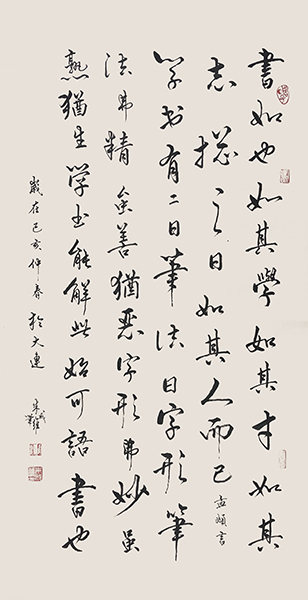 書如也如其學如其才如其
志揔之曰如其人而已 孟頫言
学书有二曰筆法曰字形筆
法弗精虽善猶惡字形弗妙虽
熟猶生學书能解此始可語書也
歲在己亥仲春於大連